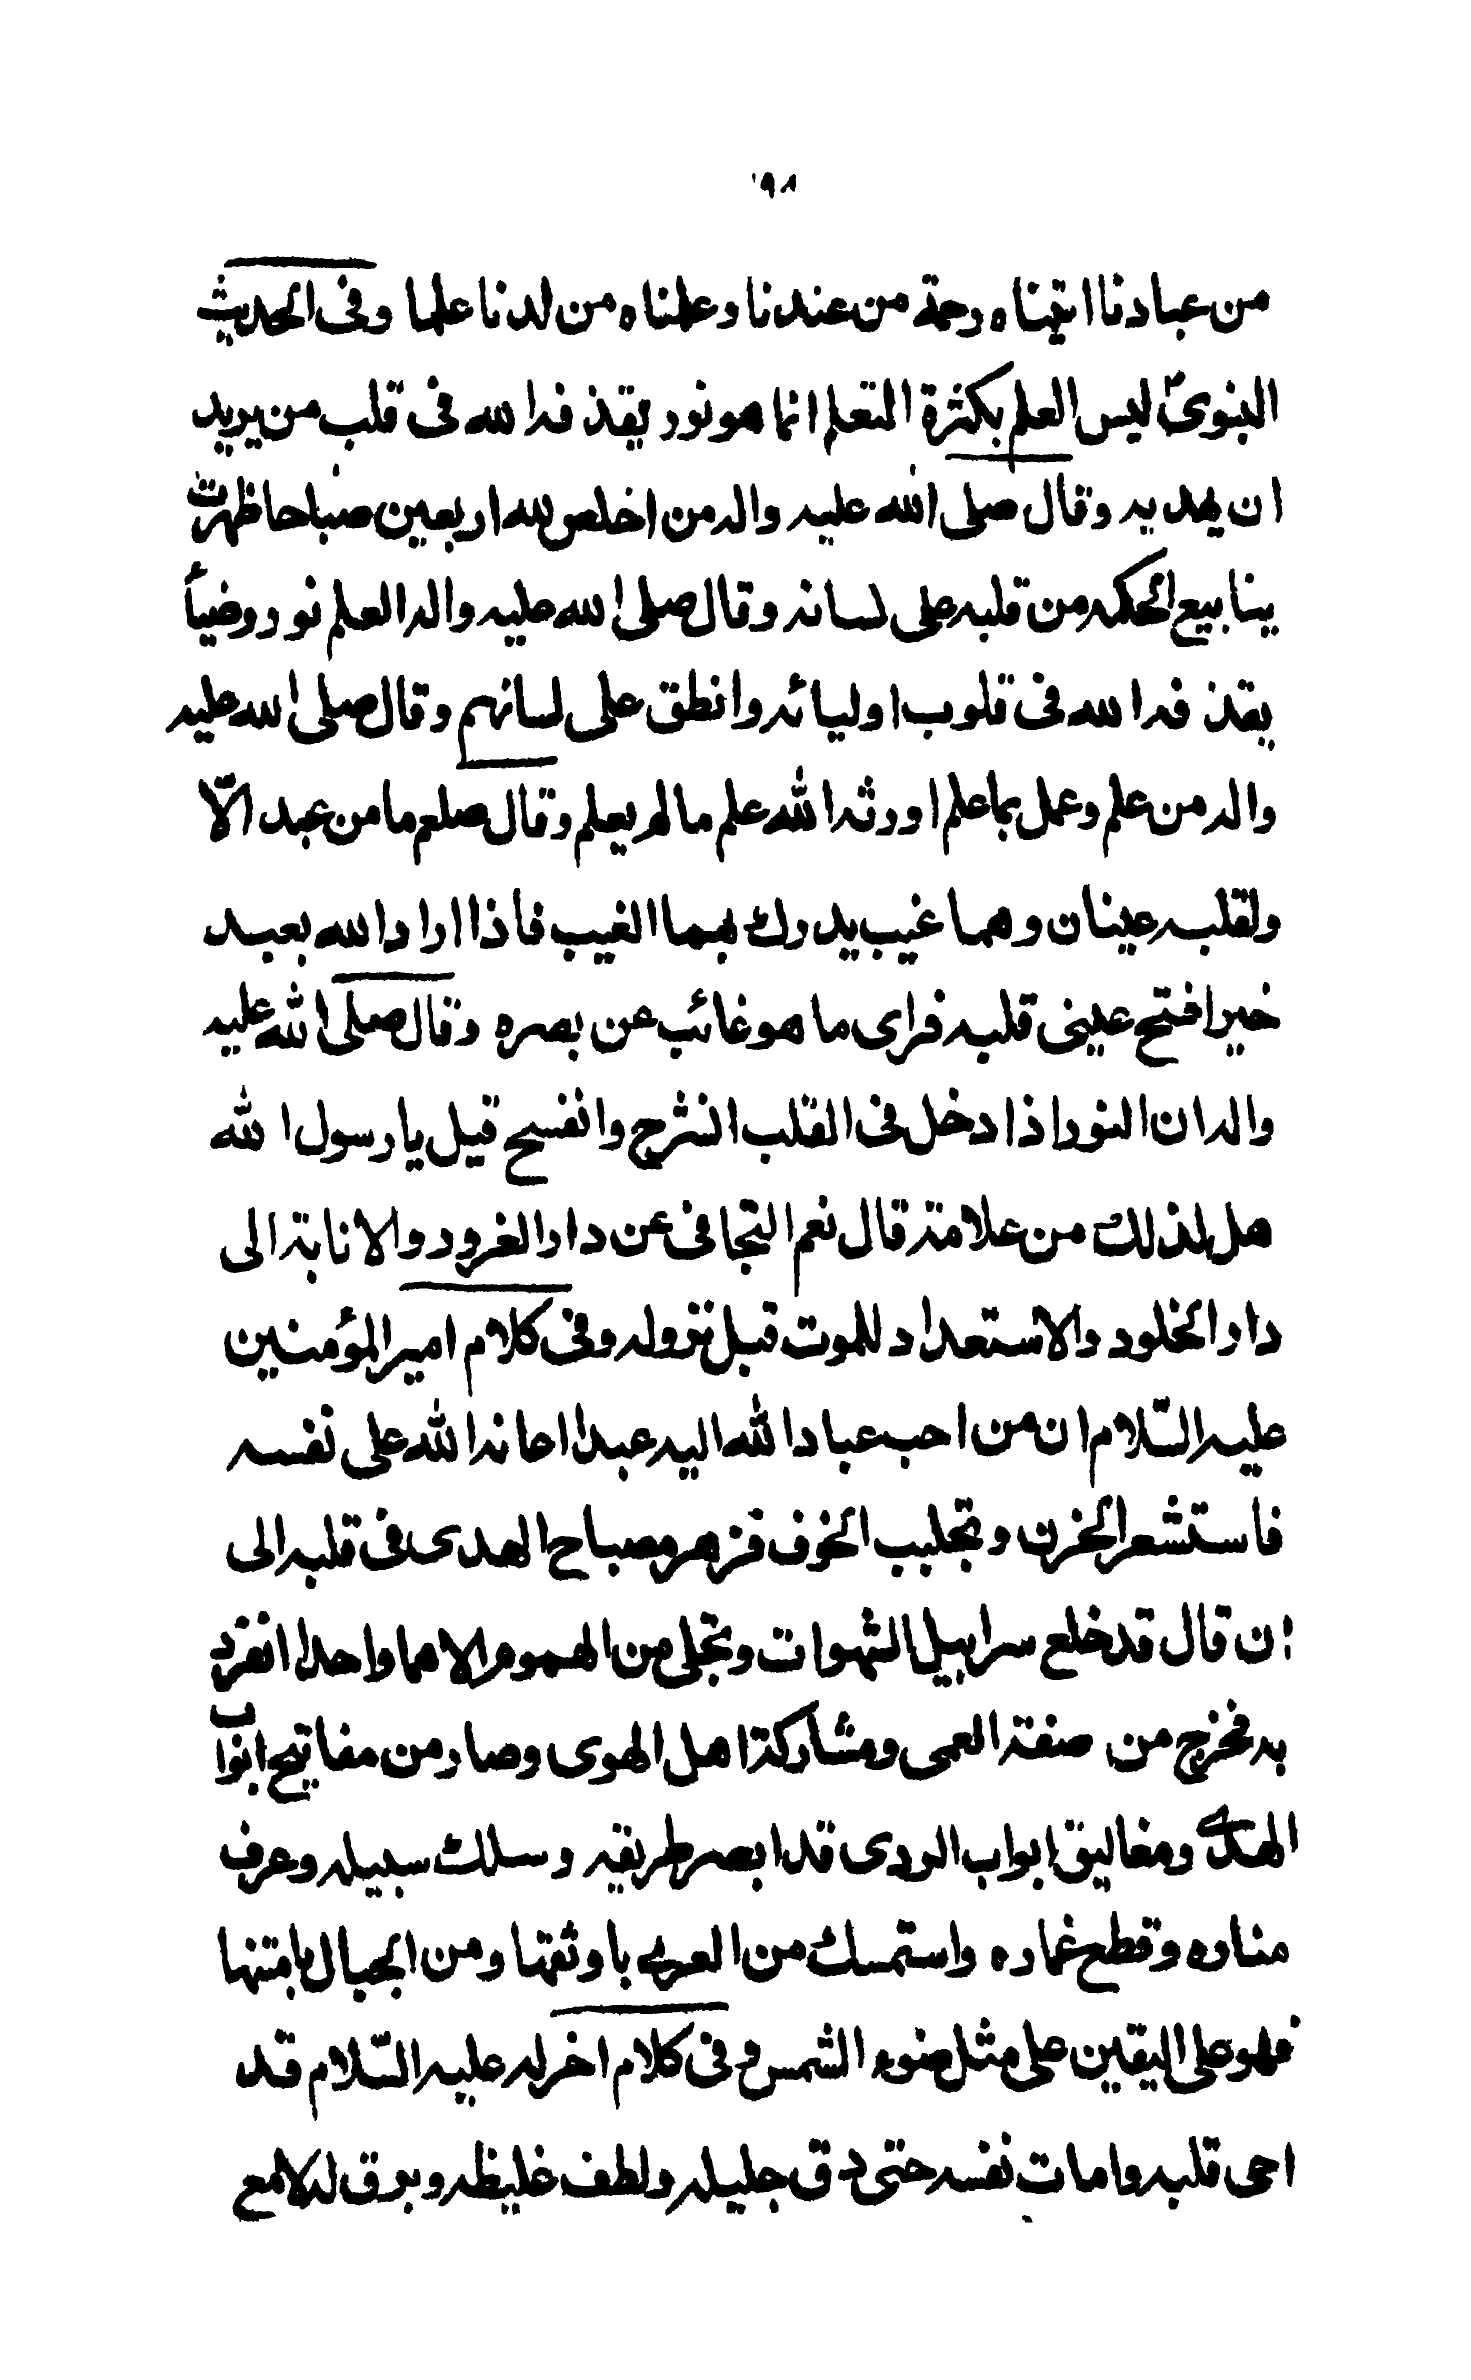 ١٩٨
من عبادنا اتيناه رحمة من عندنا وعلمناه من لدنا علما وفى الحديث
النبوى ليس العلم بكثرة التعلم انما هو نور يقذ فه الله فى قلب من يريد
ان يهديه وقال صلى الله عليه واله من اخلص لله اربعين صباحا ظهرت
ينابيع الحكمه من قلبه على لسانه وقال صلى الله عليه واله العلم نور وضياء
يقذ فه الله فى قلوب اوليائه وانطق على لسانهم وقال صلى الله عليه
واله من علم وعمل بما علم اورثه الله علم ما لم يعلم وقال صلعم ما من عبد الّا
ولقلبه عينان وهما غيب يدرك بهما الغيب فاذا اراد الله بعبد
خيرا فتح عينى قلبه فراى ما هو غائب عن بصره وقال صلى الله عليه
واله ان النور اذا دخل فى القلب انشرح وانفسح قيل يا رسول الله
هل لذلك من علامة قال نعم التجافى عن دار الغرور والانابة الى
دار الخلود والاستعداد للموت قبل نزوله وفى كلام امير المؤمنين
عليه السّلام ان من احب عباد الله اليه عبدا اعانه الله على نفسه
فاستشعر الحزن وتجلبب الخوف فزهر مصباح الهدى فى قلبه الى
ان قال قد خلع سرابيل الشهوات وتخلى من الهموم الا هما واحدا انفرد
به فخرج من صفة العمى ومشاركة اهل الهوى وصار من مفاتيح ابواب
الهدى ومغاليق ابواب الردى قد ابصر طريقه وسلك سبيله وعرف
مناره وقطع غماره واستمسك من العرى باوثقها ومن الجبال بامتنها
فهو على اليقين على مثل ضوء الشمس و فى كلام اخر له عليه السّلام قد
احى قلبه وامات نفسه حتى دق جليله ولطف غليظه وبرق له لامع